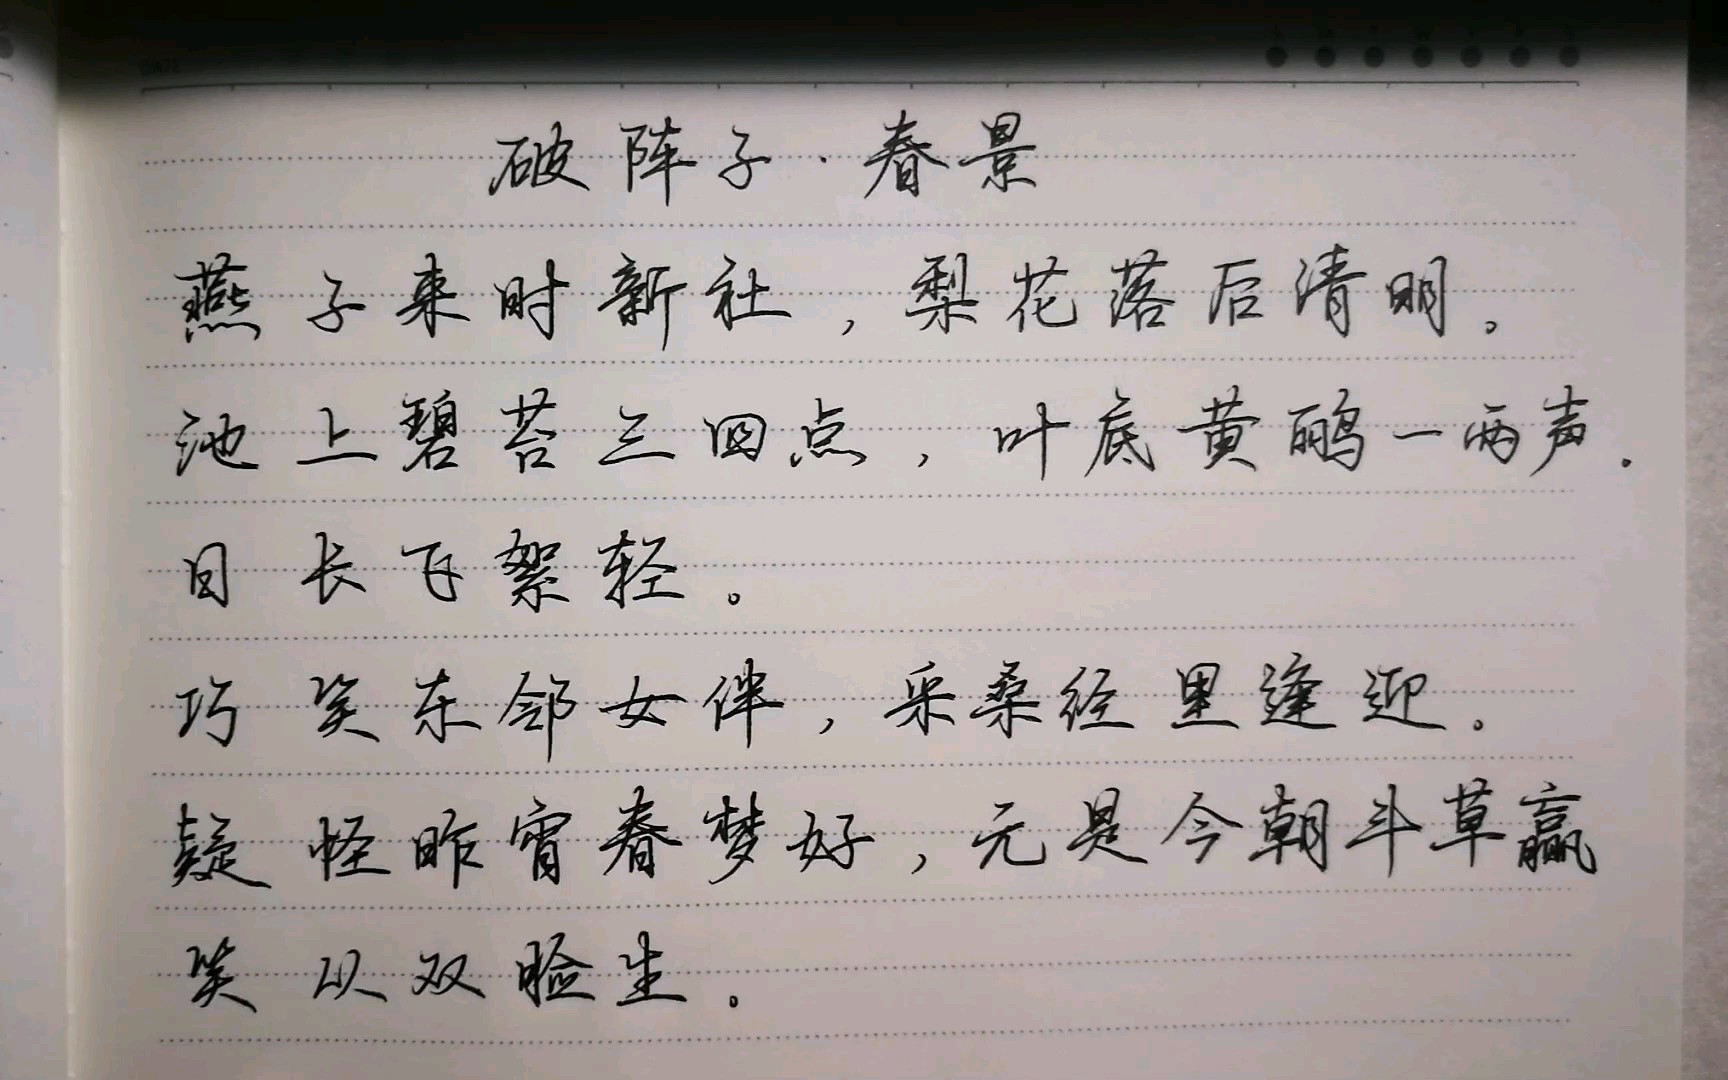 破阵子·春景
燕子来时新社，梨花落后清明。
池上碧苔三四点，叶底黄鹂一两声.
日长飞絮轻。
巧笑东邻女伴，采桑径里逢迎。
疑怪昨宵春梦好，元是今朝斗草赢
笑从双脸生。